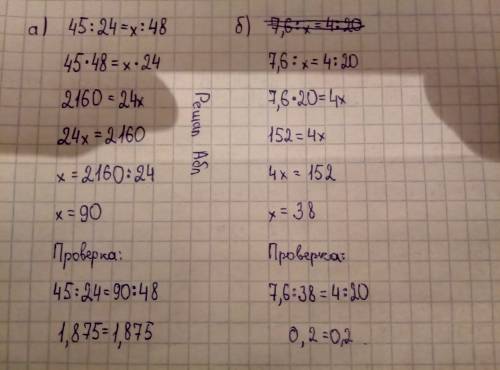 а) 45:24=x:48
45·48=x·24
2160=24x
24x=2160
x=2160:24
x=90
Проверка:
45:24=90:48
1,875=1,875
Решал
б) 7,6:x=4:20
7,6:x=4:20
7,6·20=4x
152=4x
4x=152
x=38
Проверка:
7,6:38=4:20
0,2=0,2